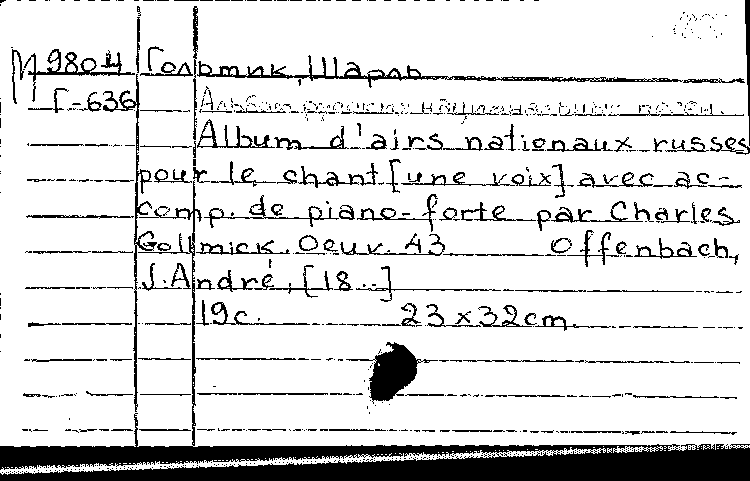 М 9804 Гольмик, Шарль
Г-636 Альбом русских национальных песен.
Album d'airs nationaux russes
pour le chant [une voix] avec ac-
comp. de piano-forte par Charles
Gollmick. Oeuv. 43 Offenbach,
J. André, [18..]
19c. 23x32cm.